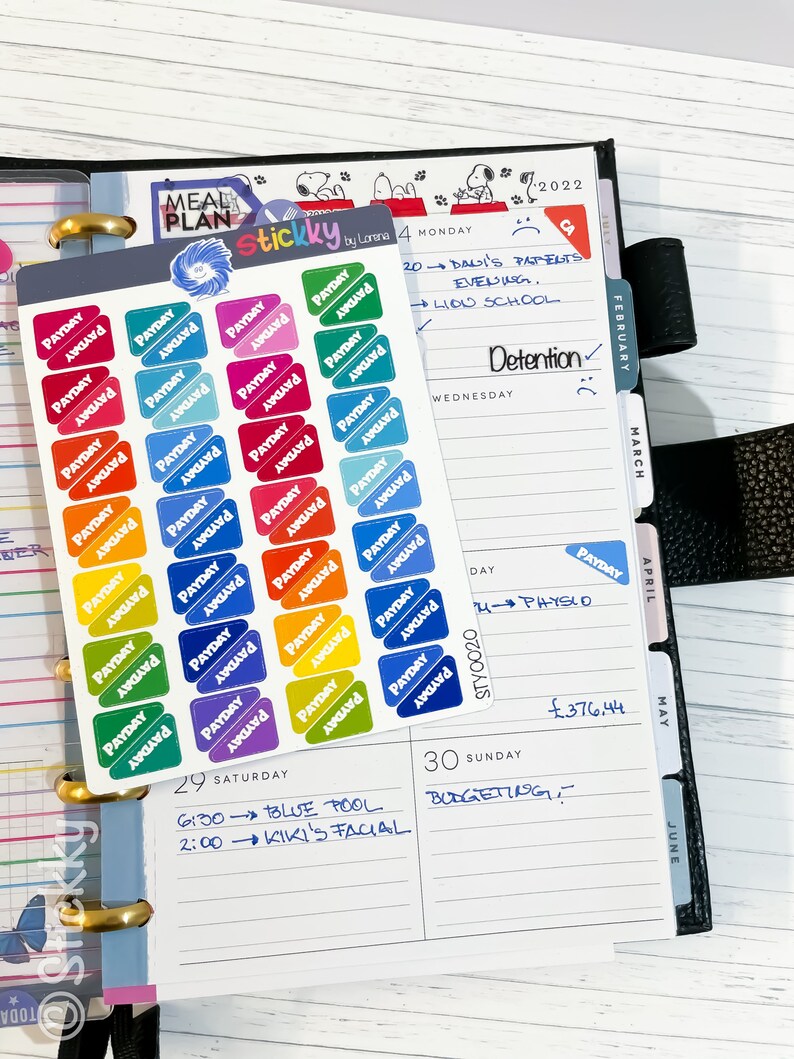 MEAL
PLAN
2022
stickky by Lorena
4 MONDAY
CA
20 → DANI'S PARENTS
EVENING.
→ LION SCHOOL
Detention ✓
WEDNESDAY
DAY
PAYDAY
PM → PHYSIO
£376,44
PAYDAY PAYDAY PAYDAY PAYDAY PAYDAY PAYDAY PAYDAY PAYDAY
PAYDAY PAYDAY PAYDAY PAYDAY PAYDAY PAYDAY PAYDAY PAYDAY
PAYDAY PAYDAY PAYDAY PAYDAY PAYDAY PAYDAY PAYDAY PAYDAY
PAYDAY PAYDAY PAYDAY PAYDAY PAYDAY PAYDAY PAYDAY PAYDAY
PAYDAY PAYDAY PAYDAY PAYDAY PAYDAY PAYDAY PAYDAY PAYDAY
PAYDAY PAYDAY PAYDAY PAYDAY PAYDAY PAYDAY PAYDAY PAYDAY
PAYDAY PAYDAY PAYDAY PAYDAY PAYDAY PAYDAY PAYDAY PAYDAY
STY0020
29 SATURDAY
6:30 → BLUE POOL
2:00 → KIKI'S FACIAL
30 SUNDAY
BUDGETING.-
JULY
FEBRUARY
MARCH
APRIL
MAY
JUNE
© Stickky
TODA